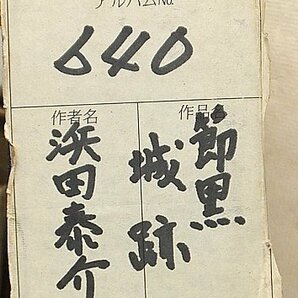 アルバムNo
640
作品名
節黒
城跡
作者名
浜田泰介